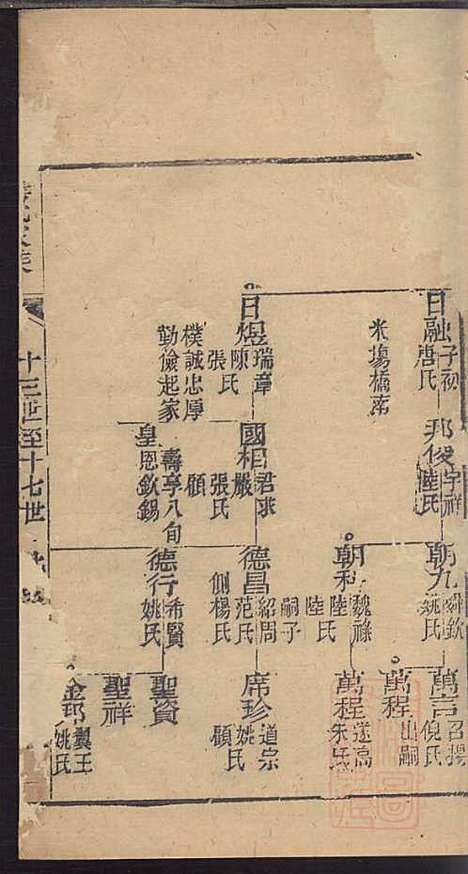 日融 子初 唐氏
米塲橋南
邦俊 宇祥 陸氏
朝九 舜欽 姚氏
萬言 召揚 倪氏
萬程 出嗣
日煜 瑞章 陳氏 張氏
樸誠忠厚
勤儉起家
國相 君求 嚴 張氏 顧
壽享八旬
皇恩欽錫
朝科 魏祿 陸氏 陸氏
嗣子
萬程 遂高 朱氏
德昌 紹周 范氏 側楊氏
席珍 道宗 姚氏 顧
德行 希賢 姚氏
聖資
聖祥
金 翼王 姚氏
十三世至十七世